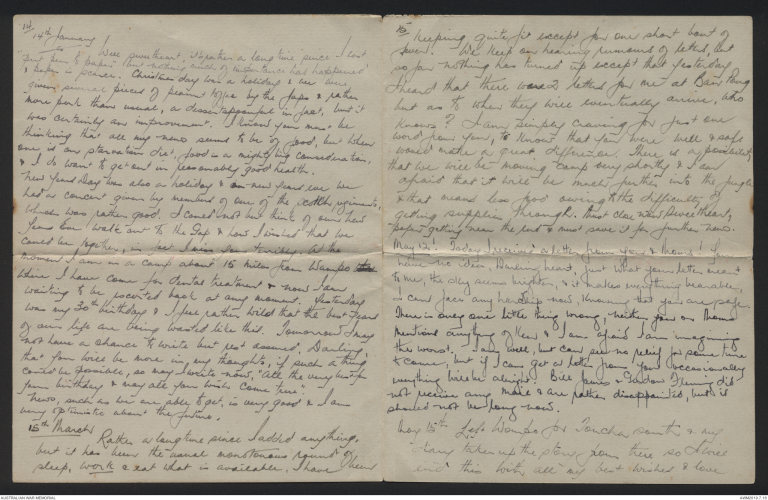 14
14th January
Well sweetheart, its rather a long time since I last
"put pen to paper" but nothing much of importance has happened
& paper is scarce. Christmas day was a holiday & we were
given several pieces of peanut toffee by the Japs & rather
more pork than usual, a dissappointment in fact, but it
was certainly an improvement. I know you must be
thinking that all my news seems to be of food, but when
one is on starvation diet, food is a mighty big consideration,
& I do want to get out in reasonably good health.
New Years Day was also a holiday & on new years eve we
had a concert given by members of one of the regiments,
which was rather good. I could not but think of our New
Years Eve walk out to the Gap & how I wished that we
could be together, in fact I miss you terribly. At the
moment I am in a camp about 15 miles from Wampo
where I have come for dental treatment & now I am
waiting to be escorted back at any moment. Yesterday
was my 30th birthday & I feel rather wild that the best years
of our life are being wasted like this. Tomorrow I may
not have a chance to write but rest assured, Darling
that you will be more in my thoughts, if such a thing
could be possible, so may I write now, "All the very best for
your birthday & may all your wishes come true".
News, such as we are able to get, is very good & I am
very optimistic about the future.
15th March
Rather a long time since I added anything,
but it has been the usual monotonous round of
sleep, work & eat what is available. I have been
15
keeping quite fit except for one short bout of
fever. We keep on hearing rumours of letters, but
so far nothing has turned up except that yesterday
I heard that there were 2 letters for me at Ban Pong
but as to when they will eventually arrive, who
knows? I am simply craving for just one
word from you, to know that you were well & safe
would make a great difference. There is a possibility
that we will be moving camp very shortly & I am
afraid that it will be much further into the jungle
& that means less food owing to the difficulty of
getting supplies through. Must close now Sweetheart,
paper getting near the end & must save it for further news.
May 12th. Today I received a letter from you & Mums! You
have no idea, Darling heart, just what your letter meant
to me, the sky seems brighter, & it makes everything bearable,
I can face any hardship now, knowing that you are safe.
There is only one little thing wrong, neither you or Mum
mentions anything of Kev & I am afraid I am imagining
the worst. I am well, but can see no relief for some time
to come, but if I can get a letter from you occasionally
everything will be alright. Bill Jones & Gordon Fleming did
not receive any mail & are rather disappointed, but it
should not be long now.
May 15th Left Wampo for Tonchan south & my
diary takes up the story from there so I will
end this with all my best wishes & love
AUSTRALIAN WAR MEMORIAL
AWM2019.7.15